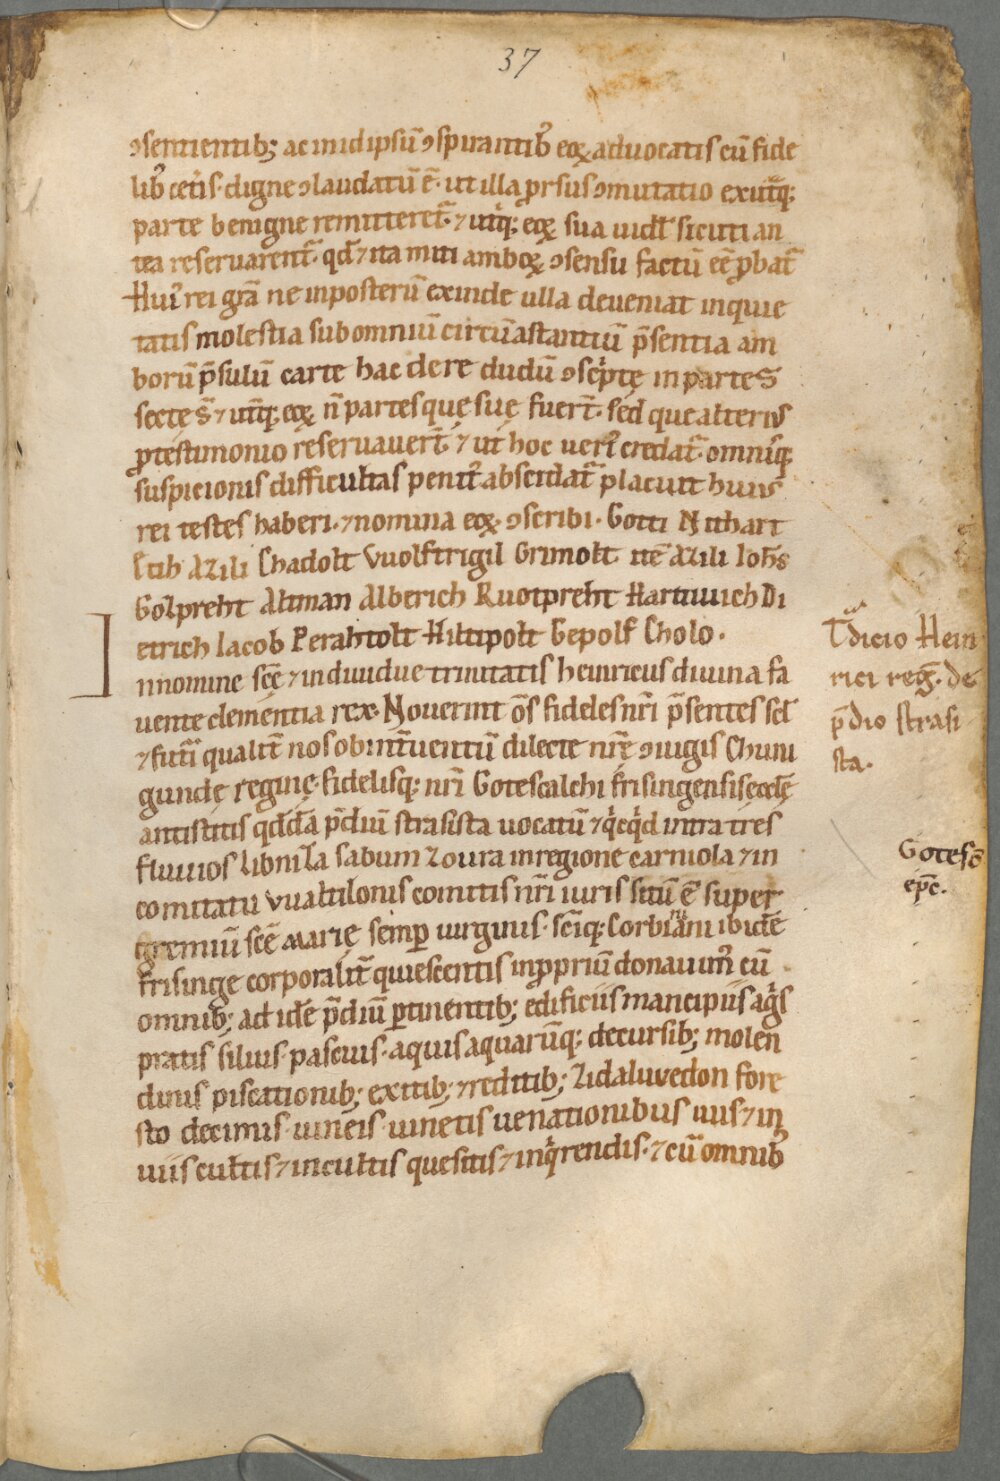 37
ↄsentientib; ac in idipsū ↄspirantib⁹ eoꝝ advocatis cū fide
lib⁹ cet͛is · digne ↄlaudatū ē · ut illa ꝓrsus ↄmutatio ex ut͛q;
parte benigne remitteret᷑ · ⁊ ut͛q; eoꝝ sua uidꝉ sicuti an
tea reservarent᷑ · qđ ⁊ ita miti amboꝝ ↄsensu factū eē ꝓbat᷑
Hui⁹ rei gr̄a ne in posterū exinde ulla deveniat inquie
tatis molestia sub omniū circūastantiū p̄sentia am
borū p̄sulū carte hac de re dudū ↄscͥptę in partes
sectę s̄ · ⁊ ut͛q; eoꝝ n̄ partes quę suę fuer̄t · sed que alterius
ꝓ testimonio reservauer̄t · ⁊ ut hoc ueri⁹ credat᷑ · omnisq;
suspicionis difficultas penit⁹ abscidat᷑ placuit huius
rei testes haberi · ⁊ nomina eoꝝ ↄscribi · Gotti Nithart
Azili Chadolt Vuolftrigil Grimolt · itē Azili Ioh̄s
Golpreht Altman Alberich Ruotpreht Hartuuich Di
etrich Iacob Perahtolt Hiltipolt Gepolf Cholo ·
I
nnomine scē ⁊ individue trinitatis heinricus divina fa
vente clementia rex · Noverint om̄s fideles nr̄i p̄sentes scꝉ
⁊ futͥi qualit͛ nos ob int͛ventū dilecte nr̄ę ↄiugis Chuni
gundę reginę · fidelisq; nr̄i Gotescalchi frisingensis eccłę
antistitis qđdā p̄diū strasista vocatū ⁊ qͥcqͥd intra tres
fluuios libniza sabum zoura in regione carniola ⁊ in
comitatu vualtilonis comitis nr̄i iuris sitū ē super
gremiū scē Marię semꝑ uirginis · scīq; Corbiniani ibidē
frisinge corporalit͛ quiescentis in ꝓpriū donauim⁹ cū
omnib; ad idē p̄diū ꝑtinentib; edificiis mancipiis agͥs
pratis siluis · pascuis · aquis aquarūq; decursib; molen
dinis piscationib; exitib; ⁊ reditib; Zidaluuedon fore
sto decimis · uineis · uinetis uenationibus uiis ⁊ in
uiis cultis ⁊ incultis quesitis ⁊ inqͥrendis · ⁊ cū omnib⁹
Tͣdicio Hein
rici reg̃ · de
p̄dio strasi
sta ·
Gotesc̄
ep̄c ·